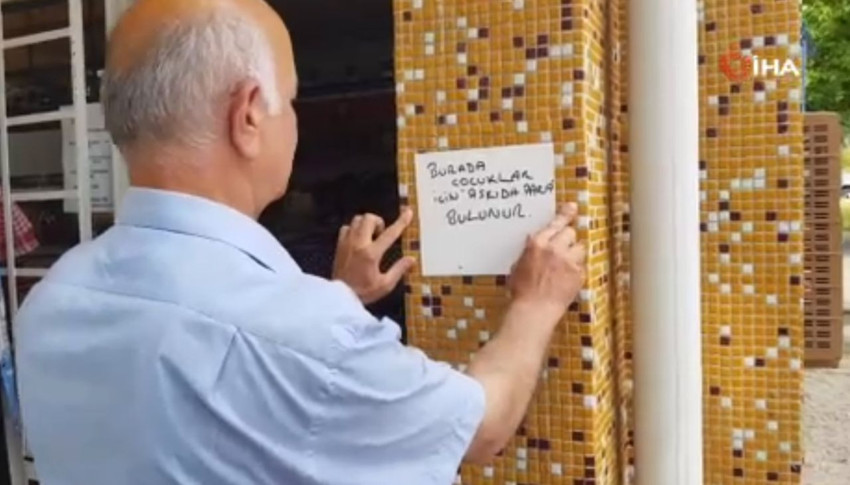 BURADA
ÇOCUKLAR
İÇİN ASKIDA PARA
BULUNUR.
İHA